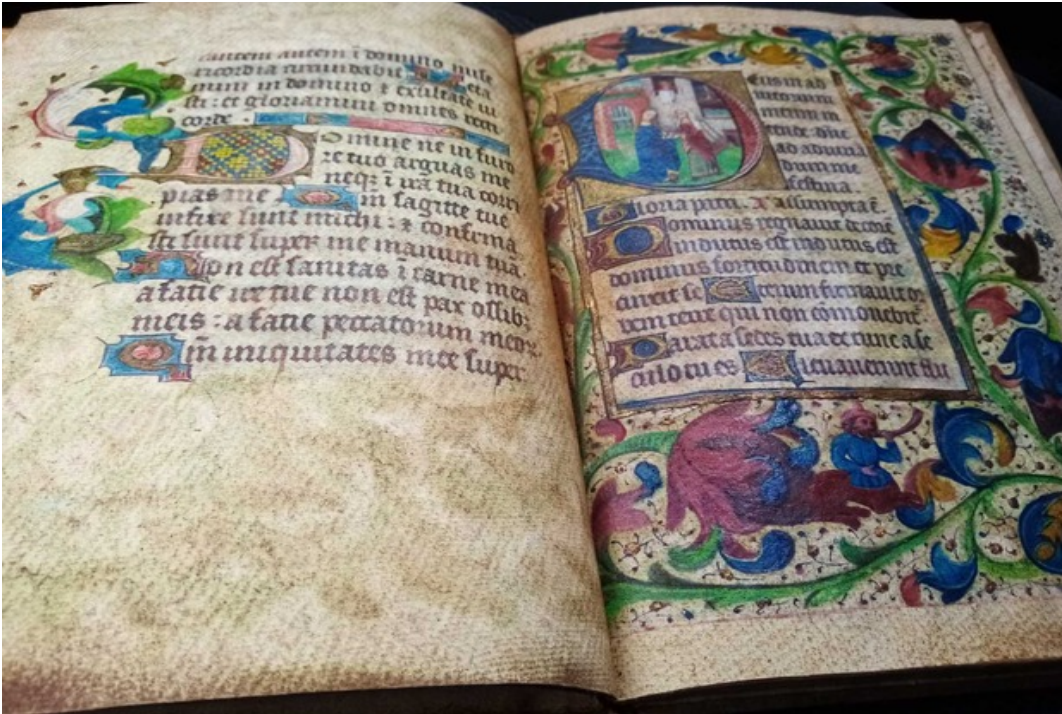 rantem autem ī domino mise
ricordia circundabit Leta
mini in domino & exultate iu
sti : et gloriamini omnes recti
corde .
Domine ne in furo
re tuo arguas me
neqʒ ī ira tua corri
pias me in sagitte tue
infixe sunt michi : & confirma
sti sunt super me manum tuā.
Non est sanitas ī carne mea
a facie ire tue non est pax ossibʒ
meis : a facie peccatorum meorʒ
Qm̄ iniquitates mee super
Deus in ad
iutorium
meum in
tende dn̄e
ad adiuva
dum me
festina
Gloria patri. assumpta ē.
Dominus regnavit decore
indutus est indutus est
dominus fortitudinem et pre
cinxit se Etenim firmavit or
bem terre qui non cōmovebit̄
Parata sedes tua ex tunc a se
culo tu es Elevaverunt flu